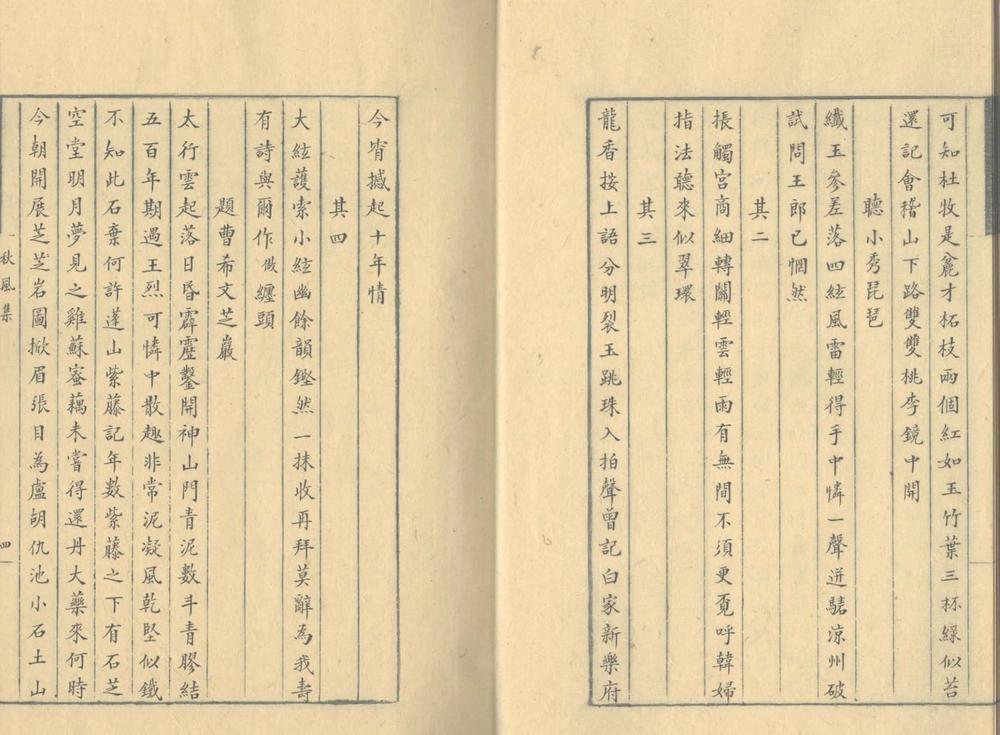 可知杜牧是麄才柘枝兩個紅如玉竹葉三杯綠似苔
還記會稽山下路雙雙桃李鏡中開
聽小秀琵琶
纖玉參差落四絃風雷輕得手中憐一聲迸𩨳涼州破
試問王郎已惘然
其二
掁觸宮商細轉關輕雲輕雨有無間不須更覓呼韓婦
指法聽來似翠環
其三
龍香按上語分明裂玉跳珠入拍聲曾記白家新樂府
今宵撼起十年情
其四
大絃護索小絃幽餘韻鏗然一抹收再拜莫辭為我壽
有詩與爾作做纏頭
題曹希文芝巖
太行雲起落日昏霹靂鑿開神山門青泥數斗青膠結
五百年期遇王烈可憐中散趣非常泥凝風乾堅似鐵
不知此石棄何許蓬山紫藤記年數紫藤之下有石芝
空堂明月夢見之雞蘇蜜藕未嘗得還丹大藥來何時
今朝開展芝芝岩圖掀眉張目為盧胡仇池小石土山
秋風集
四